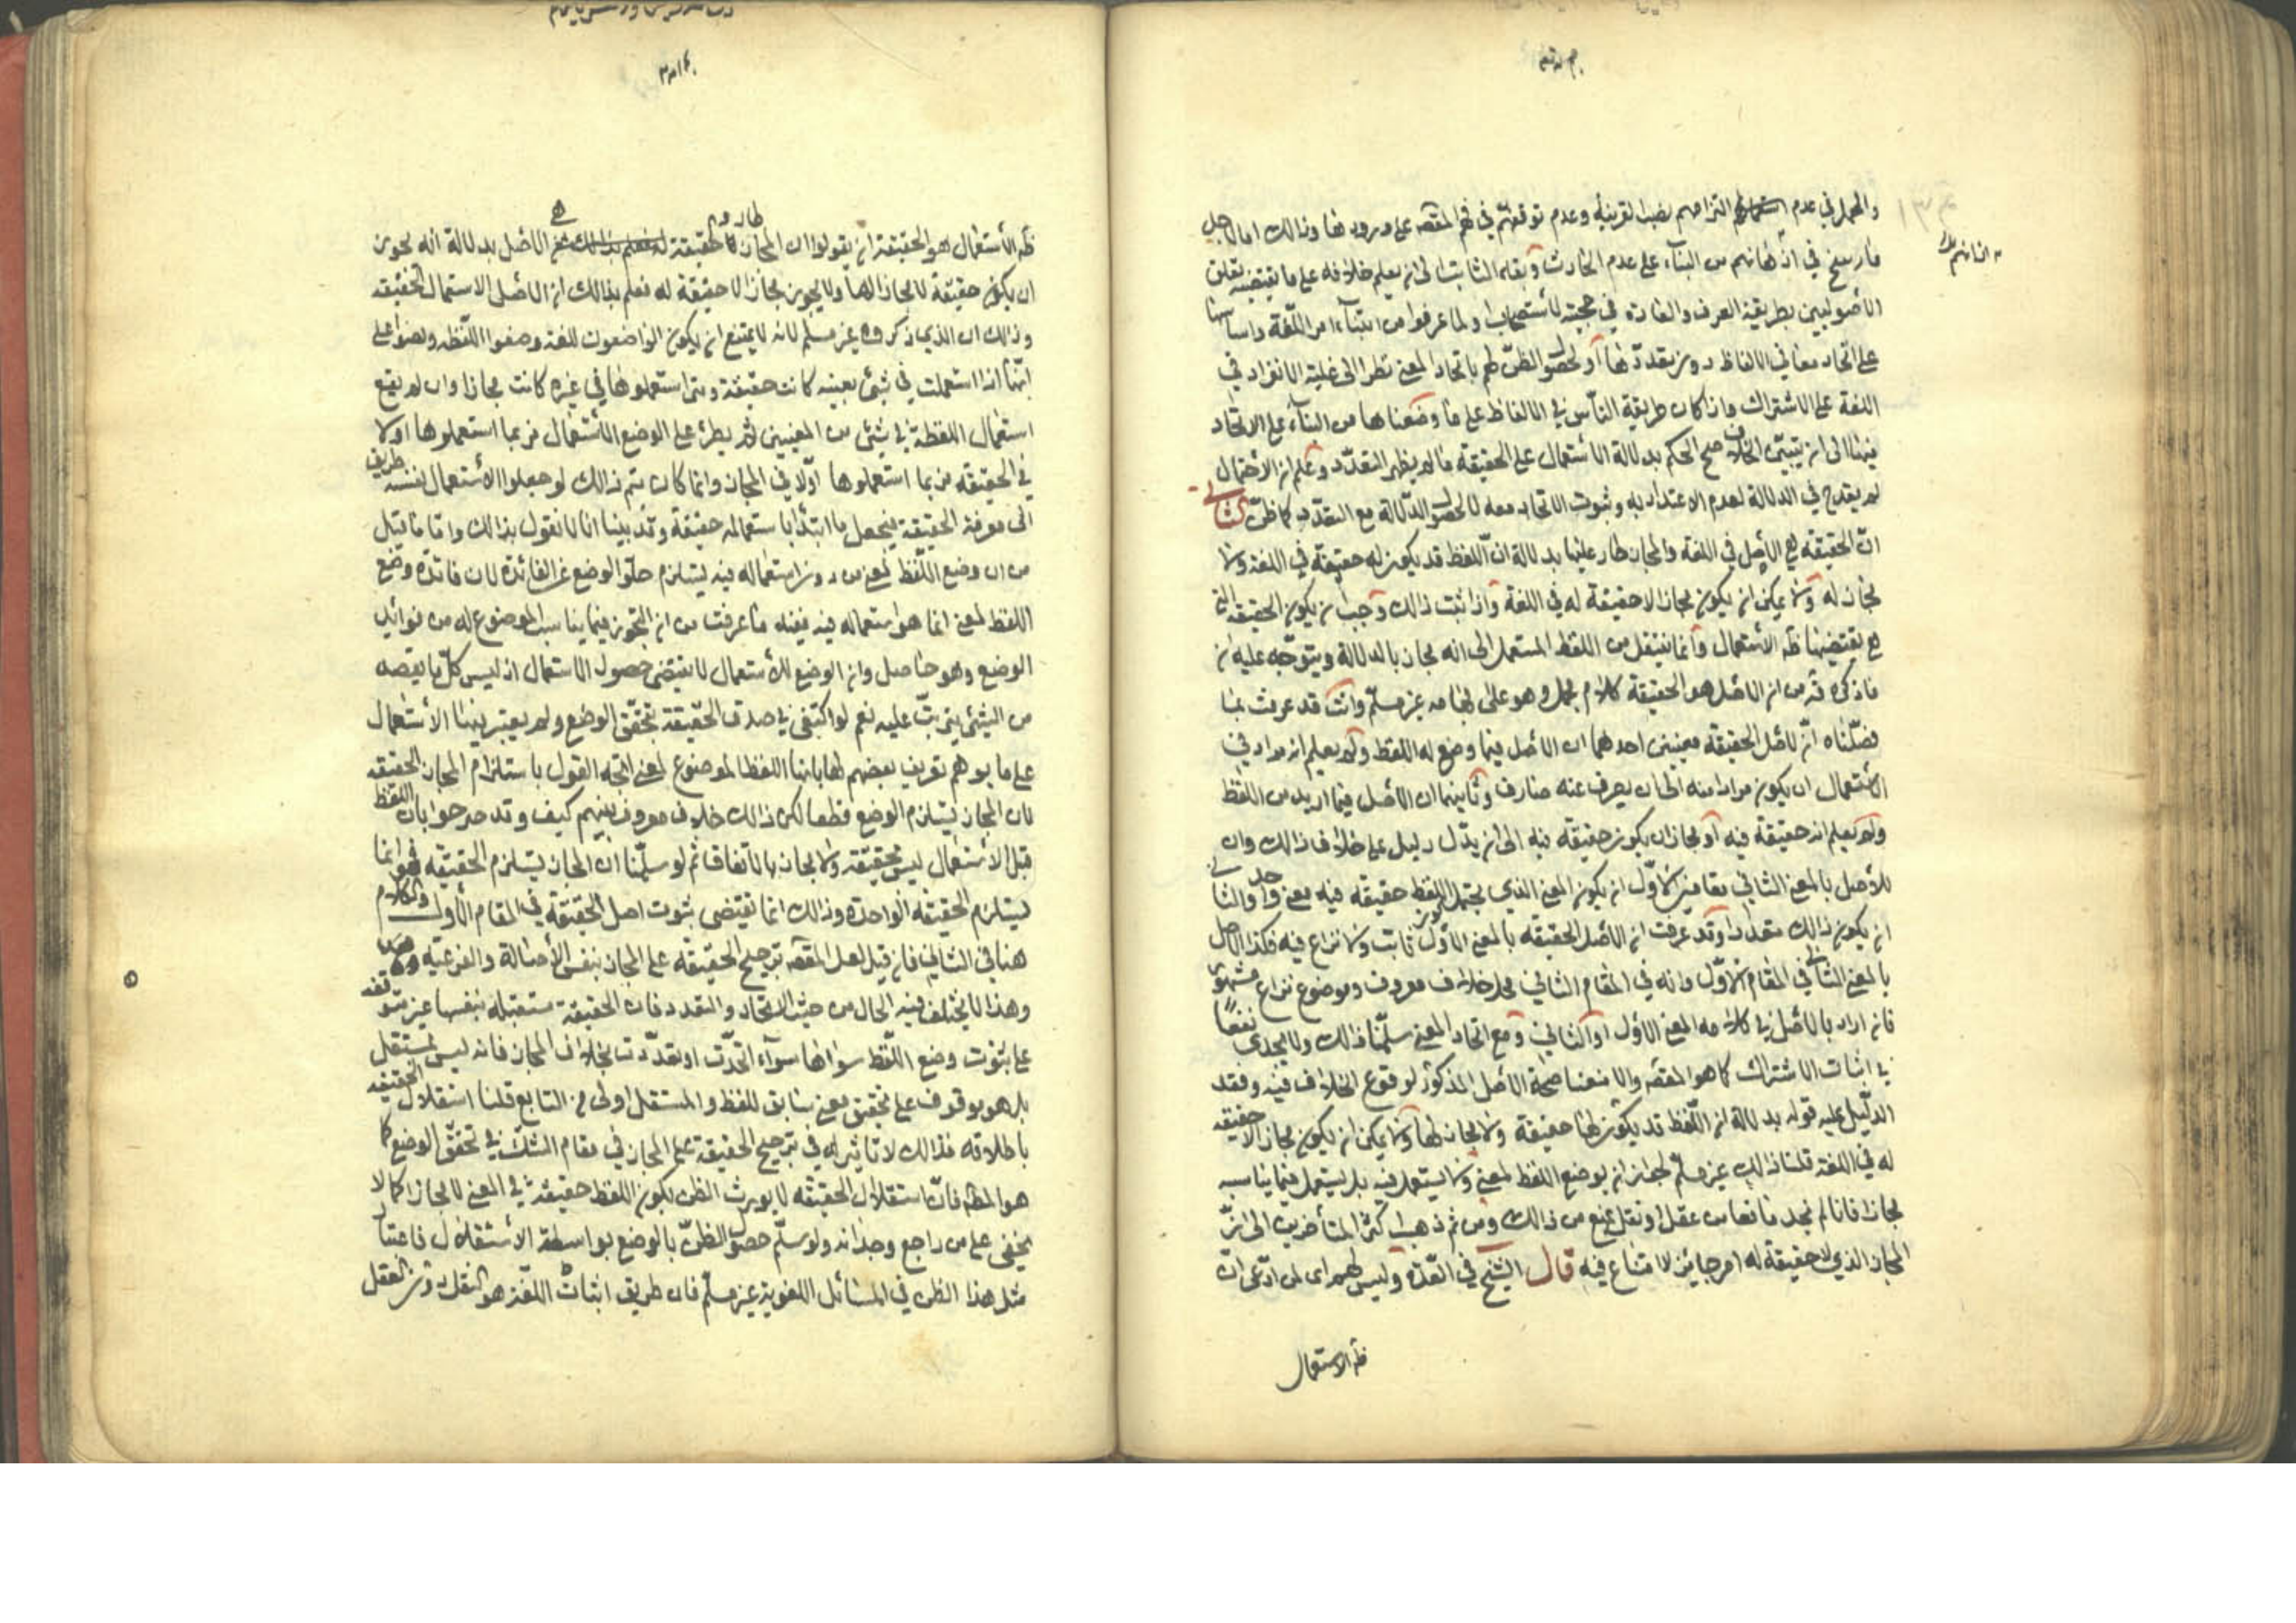 والجمل في عدم التزامهم نصب القرينة وعدم توقفهم في فهم المقصه على ورودها وذالك اما لاجل
ما رسخ في اذهانهم من البناء على عدم الحادث وبقاء الثابت الى ان يعلم خلافه على ما يقتضيه
الاصوليين بطريقة العرف والعادة في حجية الاستصحاب او لما عرفوا من ابتناء امر اللغة واساسها
على اتحاد معاني الالفاظ دون تعددها او لحصول الظن لهم باتحاد المعنى نظرا الى غلبة الانفراد في
اللغة على الاشتراك واذا كان طريقة الناس في الالفاظ على ما وصفناها من البناء على الاتحاد
فيها الى ان يتبين الخلاف صح الحكم بدلالة الاستعمال على الحقيقة ما لم يظهر التعدد وعلم ان الاحتمال
لم يقدح في الدلالة لعدم الاعتداد به وثبوت الاتحاد معه لا لحصول الدلالة مع التعدد كما ظن الثاني
ان الحقيقة هي الاصل في اللغة والمجاز طار عليها بدلالة ان اللفظ قد يكون له حقيقة في اللغة ولا
مجاز له ولا يمكن ان يكون مجاز لا حقيقة له في اللغة واذا ثبت ذالك وجب ان يكون الحقيقة التي
هي يقتضيها ظه الاستعمال وانما ننتقل من اللفظ المستعمل الى انه مجاز بالدلالة ويتوجه عليه ان
ما ذكره من ان الاصل هو الحقيقة كلام مجمل وهو على اجماله غير مسلم وانت قد عرفت بما
فصلناه ان لاصل الحقيقة معنيين احدهما ان الاصل فيما وضع له اللفظ ولم يعلم انه مراد في
الاستعمال ان يكون مرادا منه الى ان يصرف عنه صارف وثانيهما ان الاصل فيما اريد من اللفظ
ولم يعلم انه حقيقة فيه او مجاز ان يكون حقيقة فيه الى ان يدل دليل على خلاف ذالك وان
للاصل بالمعنى الثاني مقامين الاول ان يكون المعنى الذي يحتمل اللفظ حقيقة فيه معنى واحد والثاني
ان يكون ذالك متعددا وقد عرفت ان الاصل الحقيقة بالمعنى الاول ثابت ولا نزاع فيه فكذا الاصل
بالمعنى الثاني في المقام الاول وانه في المقام الثاني محل خلاف معروف وموضوع نزاع مشهور
فان اراد بالاصل في كلامه المعنى الاول او الثاني ومع اتحاد المعنى سلمنا ذالك ولا يجدي نفعا
في اثبات الاشتراك كما هو المقصه والا منعنا صحة الاصل المذكور لوقوع الخلاف فيه وفقد
الدليل عليه قوله بدلالة ان اللفظ قد يكون لها حقيقة ولا مجاز لها ولا يمكن ان يكون مجاز لا حقيقة
له في اللغة قلنا ذالك غير مسلم لجواز ان يوضع اللفظ لمعنى ولا يستعمل فيه بل يستعمل فيما يناسبه
مجازا فانا لم نجد مانعا من عقل او نقل يمنع من ذالك ومن ثم ذهب اكثر المتأخرين الى ان
المجاز الذي لا حقيقة له امر جايز لا امتناع فيه قال الشيخ في العدة وليس لهم اى لمن ادعى ان
ظه الاستعمال
ظه الاستعمال هو الحقيقة ان يقولوا ان المجاز طار والحقيقة هي الاصل بدلالة انه يجوز
ان يكون حقيقة لا مجاز لها ولا يجوز مجاز لا حقيقة له فعلم بذالك ان الاصل الاستعمال الحقيقة
وذالك ان الذي ذكروه غير مسلم لانه لا يمتنع ان يكون الواضعون للغة وضعوا اللفظه ونصوا على
انها اذا استعملت في شئ بعينه كانت حقيقة ومتى استعملوها في غيره كانت مجازا وان لم يقع
استعمال اللفظة في شئ من المعنيين ثم يطرء على الوضع الاستعمال فربما استعملوها اولا
في الحقيقة وربما استعملوها اولا في المجاز وانما كان يتم ذالك لو جعلوا الاستعمال نفسه طريق
الى معرفة الحقيقة فيجعل ما ابتدا باستعماله حقيقة وقد بينا انا لا نقول بذالك واما ما قيل
من ان وضع اللفظ لمعنى من دون استعماله فيه يستلزم خلو الوضع عن الفائدة لان فائدة وضع
اللفظ لمعنى انما هو استعماله فيه ففيه ما عرفت من ان التجوز فيما يناسب الموضوع له من فوائد
الوضع وهو حاصل وان الوضع للاستعمال لا يقتضي حصول الاستعمال اذ ليس كل ما يقصه
من الشئ يترتب عليه نعم لو اكتفى في صدق الحقيقة بتحقق الوضع ولم يعتبر فيها الاستعمال
على ما يوهم تعريف بعضهم لها بانها اللفظ الموضوع لمعنى اتجه القول باستلزام المجاز الحقيقة
لان المجاز يستلزم الوضع قطعا لكن ذالك خلاف معروف بينهم كيف وقد صرحوا بان اللفظ
قبل الاستعمال ليس بحقيقة ولا مجاز بالاتفاق ثم لو سلمنا ان المجاز يستلزم الحقيقة فهو انما
يستلزم الحقيقة الواحدة وذالك انما يقتضي ثبوت اصل الحقيقة في المقام الاول والكلام
هنا في الثاني فان قيل لعل المقصه ترجيح الحقيقة على المجاز بنفس الاصالة والفرعية
وهذا لا يختلف فيه الحال من حيث الاتحاد والتعدد فان الحقيقة مستقبلة بنفسها غير متوقفه
على ثبوت وضع اللفظ سواها سواء اتحدت او تعددت بخلاف المجاز فانه ليس بمستقل
بل هو موقوف على تحقق معنى سابق للفظ والمستقل اولى من التابع قلنا استقلال الحقيقه
باطلاقه فذالك لا تاثير له في ترجيح الحقيقة على المجاز في مقام الشك في تحقق الوضع كما
هو المظه فان استقلال الحقيقة لا يورث الظن بكون اللفظ حقيقة في المعنى لا مجازا كما لا
يخفى على من راجع وجدانه ولو سلم حصول الظن بالوضع بواسطة الاستقلال فاعتبار
مثل هذا الظن في المسائل اللغوية غير مسلم فان طريق اثبات اللغة هو النقل دون العقل